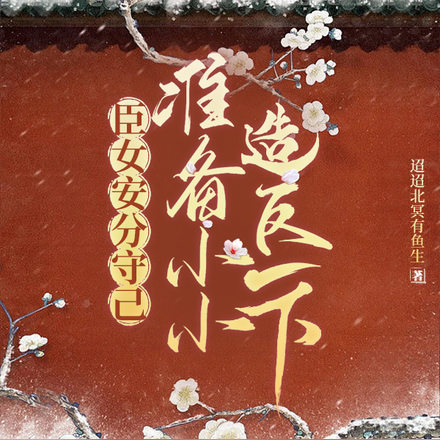 臣女安分守己
准备小小
造反一下
迢迢北冥有鱼生
著